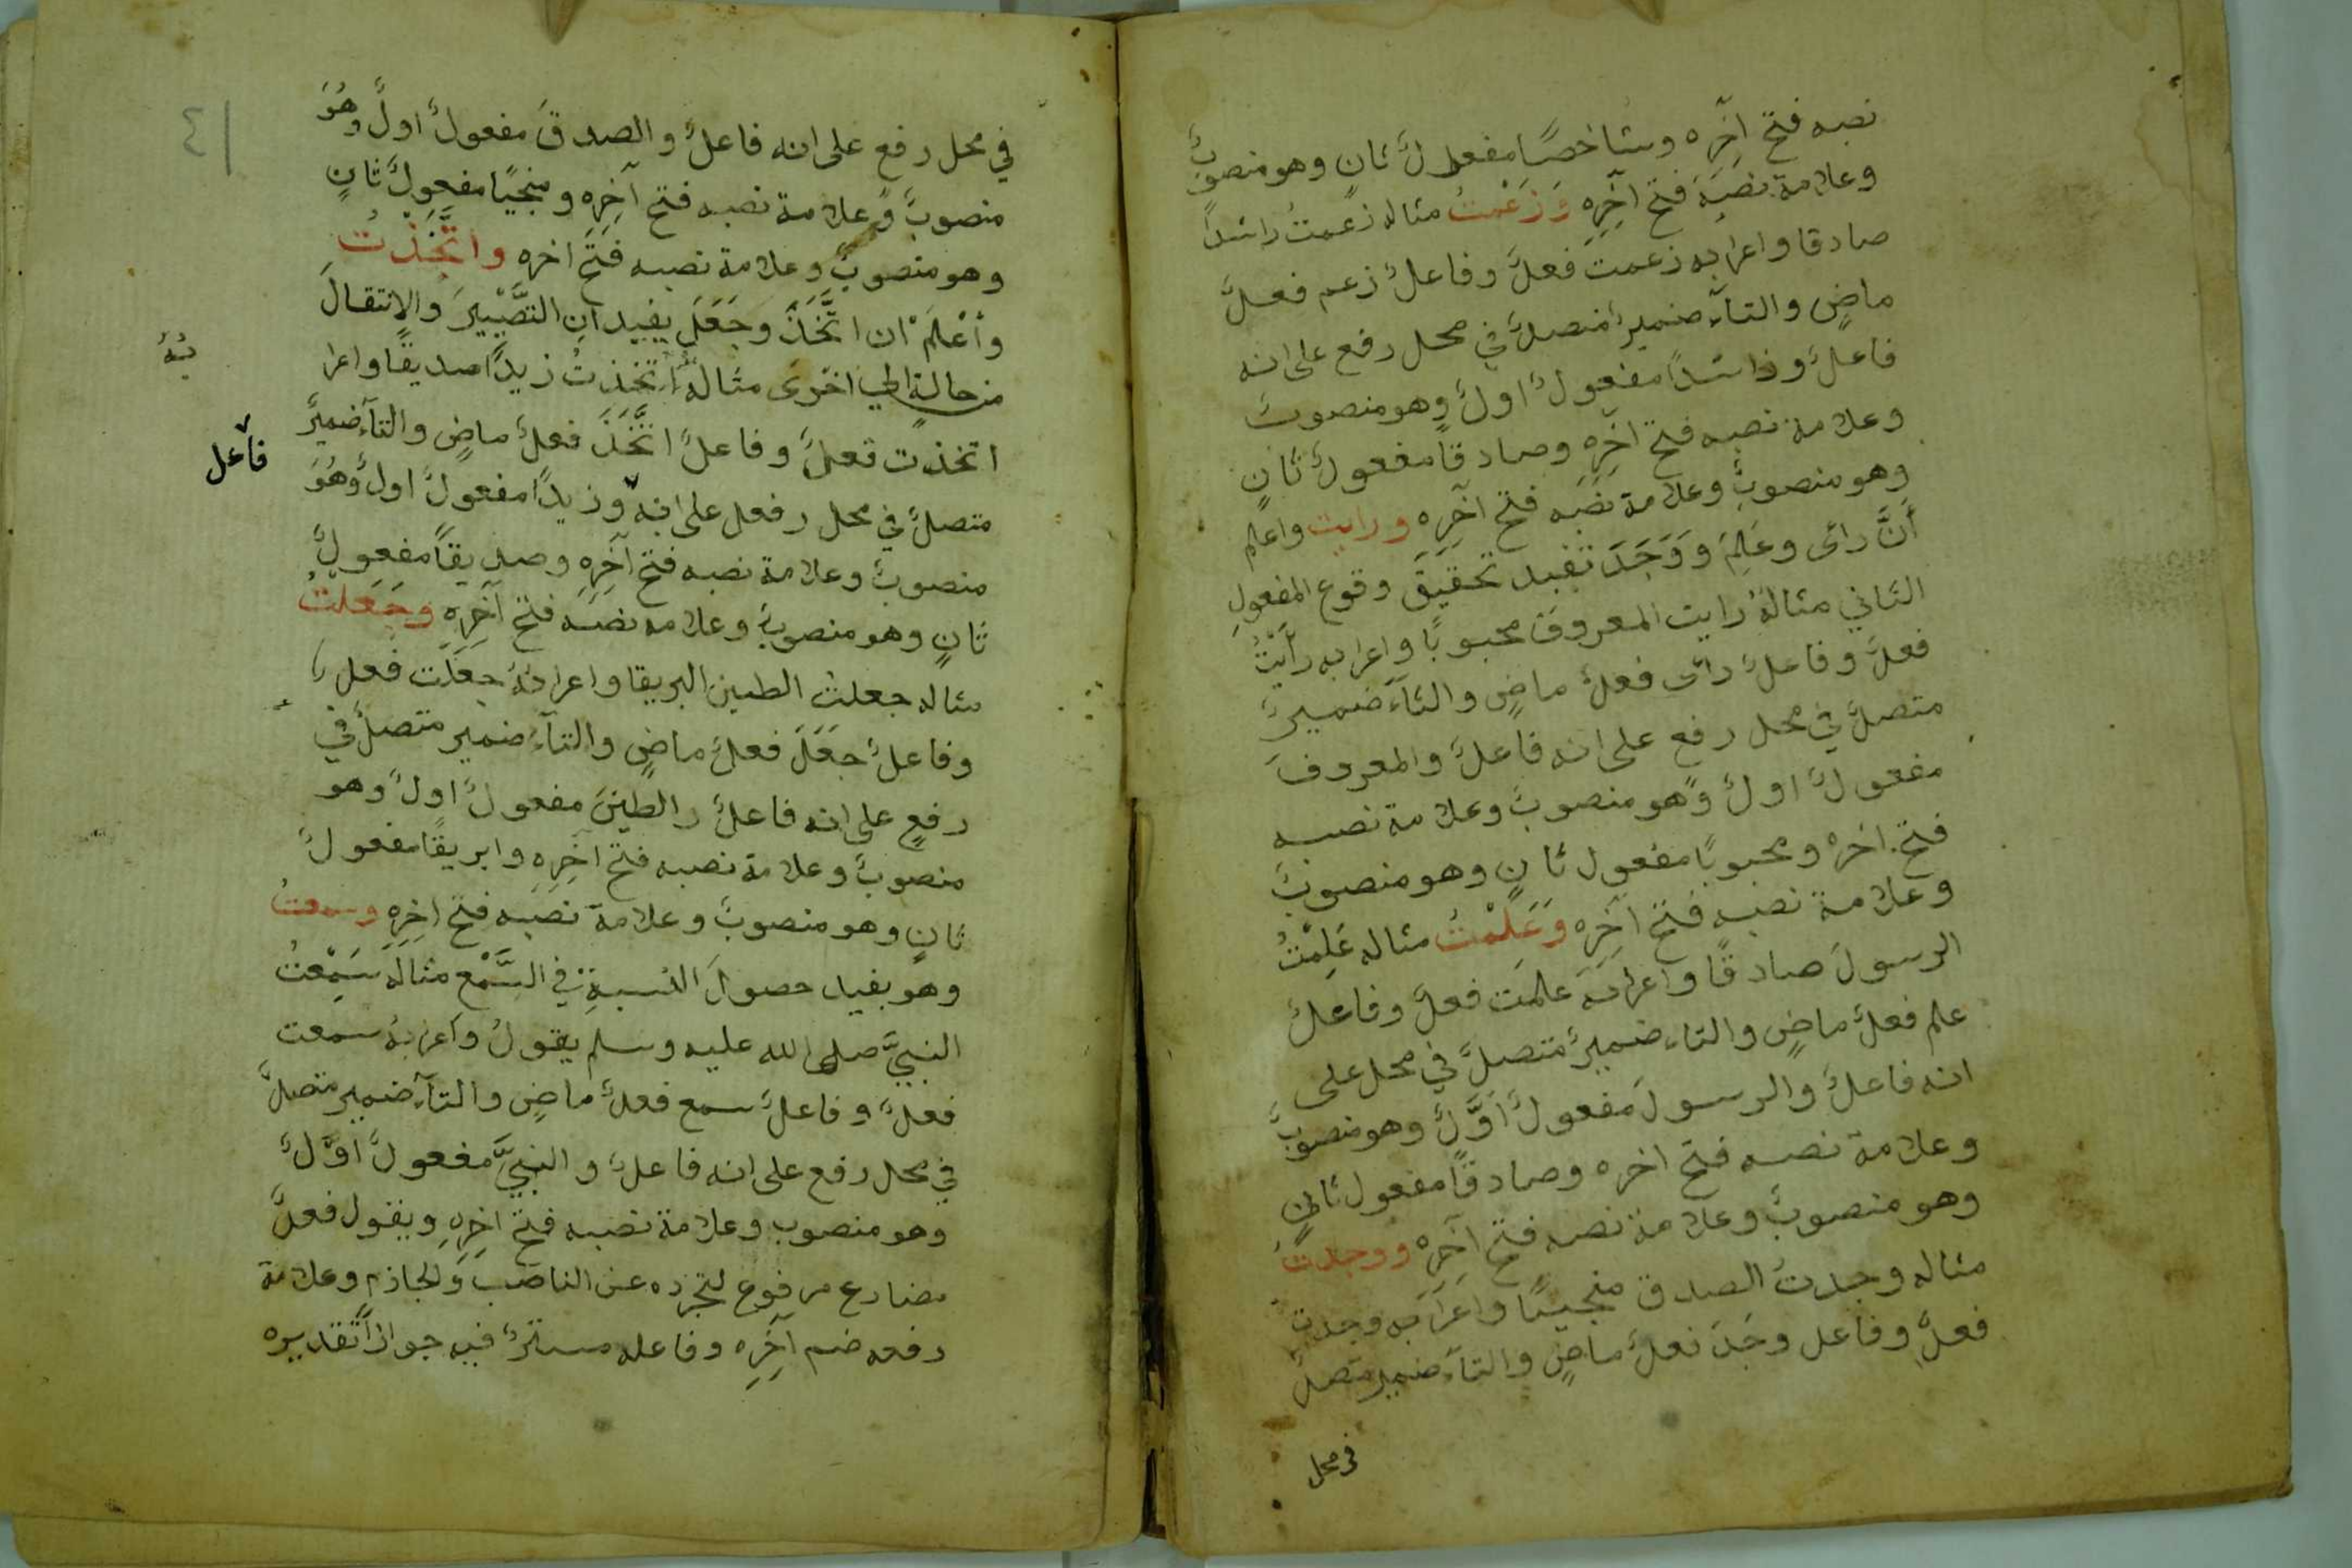 نصبه فتح آخِرِه وشاخصًا مفعولٌ ثانٍ وهو منصوبٌ
وعلامة نصبَه فتح آخِرِه وَزَعَمْتُ مثاله زعمتُ راشداً
صادقا واعرابه زعمت فعلٌ وفاعلٌ زعم فعلٌ
ماضٍ والتآء ضميرٌ متصلٌ في محل رفع على انه
فاعلٌ وراشداً مفعولٌ اولٌ وهو منصوبٌ
وعلامة نصبه فتح آخِرِه وصادقًا مفعولٌ ثانٍ
وهو منصوبٌ وعلامة نصَبَه فتح آخِرِه ورايت واعلم
أَنَّ رأى وعَلِمَ وَوَجَدَ تفيد تحقيَقَ وقوع المفعولِ
الثاني مثالهُ رايت المعروفَ محبوبًا واعرابه رأَيْتُ
فعلٌ وفاعلٌ رأى فعلٌ ماضٍ والتآءَ ضميرٌ
متصلٌ في محل رفع على انه فاعلٌ والمعروفَ
مفعولٌ اولٌ وهو منصوبٌ وعلامة نصبه
فتح اخره ومحبوبًا مفعول ثانٍ وهو منصوبٌ
وعلامة نصبه فتح آخَرِه وَعَلِمْتُ مثاله عَلِمْتُ
الرسولَ صادقًا واعرابَه علمَت فعلٌ وفاعلٌ
علم فعلٌ ماضٍ والتاء ضميرٌ متصلٌ في محل على
انه فاعلٌ والرسولَ مفعولٌ اَوَّلٌ وهو منصوبٌ
وعلامة نصبه فتح اخره وصادقًا مفعول ثانٍ
وهو منصوبٌ وعلامة نصبه فتح آخِرِه ووجدتُ
مثاله وجدتُ الصدق منجيًا واعَرابَه وجدت
فعلٌ وفاعل وجَدَ فعلٌ ماضٍ والتآء ضمير متصلٌ
في محل
٤١
في محل رفع على انه فاعلٌ والصدقَ مفعولٌ اولٌ وهُوَ
منصوبٌ وعلامة نصبه فتح آخِرِه ومنجيًا مفعولٌ ثانٍ
وهو منصوبٌ وعلامة نصبه فتَح اخره واتَّخَذْتُ
وأعْلَمْ ان اتَّخَذَ وجَعَلَ يفيدانِ التَّصْيِيرَ والانتقالَ
من حالةٍ الي اخرى مثاله اتخذتُ زيدًا صديقًا واعرا
بُهُ
اتخذت فعلٌ وفاعلٌ اتَّخَذَ فعلٌ ماضٍ والتآء ضميرٌ
متصلٌ في محل رفعل على انه وزيدًا مفعولٌ اولٌ وهُوَ
فاعل
منصوبٌ وعلامة نصبه فتح آخِرِه وصديقاً مفعولٌ
ثانٍ وهو منصوبٌ وعلامه نصبَه فتح آخِرِه وجَعَلتُ
مثاله جعلتُ الطين البريقا واعرابهُ جعَلَت فعل
وفاعلٌ جعَلَ فعلٌ ماضٍ والتآء ضمير متصلٌ في
رفعٍ على انه فاعلٌ رالطينَ مفعولٌ اولٌ وهو
منصوبٌ وعلامة نصبه فتح آخِرِه وابريقًا مفعولٌ
ثانٍ وهو منصوبٌ وعلامة نصبه فتح اخِرِه وسمعتُ
وهو يفيد حصولَ النسبةِ في السَّمْع مثاله سَمِعْتُ
النبيَّ صلى الله عليه وسلم يقولُ واَعرابهُ سمعت
فعلٌ وفاعلٌ سمع فعلٌ ماضٍ والتآء ضمير متصلٌ
في محل رفع على انه فاعلٌ والنبيَّ مفعولٌ اوّلٌ
وهو منصوب وعلامة نصبه فتح اخِرِهِ ويقول فعلٌ
مضارع مرفوع لتجرده عن الناصبَ وَلجازم وعلامة
رفعه ضم آخِرِه وفاعله مستترٌ فيه جوازاً تقديره